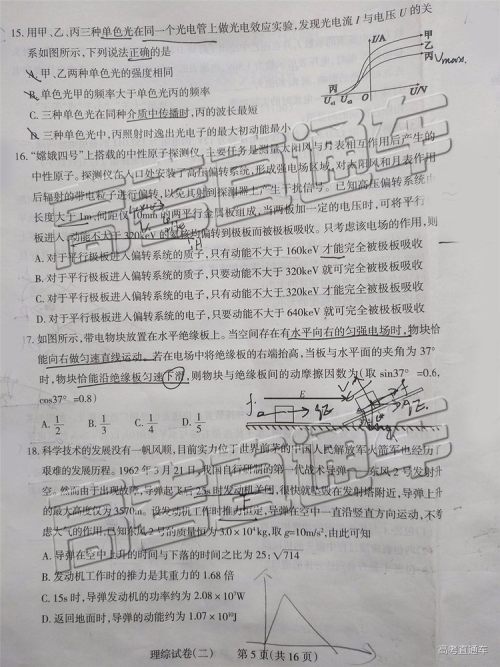 15. 用甲、乙、丙三种单色光在同一个光电管上做光电效应实验,发现光电流 I 与电压 U 的关
系如图所示,下列说法正确的是
I/A
甲
乙
丙
Vmax.
丙
Uc1 Uc2 O U/V
A. 甲、乙两种单色光的强度相同
B. 单色光甲的频率大于单色光丙的频率
C. 三种单色光在同种介质中传播时,丙的波长最短
D. 三种单色光中,丙照射时逸出光电子的最大初动能最小
16. “嫦娥四号”上搭载的中性原子探测仪,主要任务是测量太阳风与月表相互作用后产生的
中性原子。探测仪在入口处安装了高压偏转系统,形成强电场区域,对太阳风和月表作用
后辐射的带电粒子进行偏转,以免其射到探测器上产生干扰信号。已知高压偏转系统由
长度大于1m、间距仅10mm的两平行金属板组成,当两板加一定的电压时,可将平行
板进入、动能不大于320keV的氦核均偏转到极板而被极板吸收。只考虑该电场的作用,则
A. 对于平行极板进入偏转系统的质子,只有动能不大于160keV 才能完全被极板吸收
B. 对于平行极板进入偏转系统的质子,只要动能不大于320keV 就可完全被极板吸收
C. 对于平行极板进入偏转系统的电子,只有动能不大于320keV 才能完全被极板吸收
D. 对于平行极板进入偏转系统的电子,只要动能不大于640keV 就可完全被极板吸收
7. 如图所示,带电物块放置在水平绝缘板上。当空间存在有水平向右的匀强电场时,物块恰
能向右做匀速直线运动。若在电场中将绝缘板的右端抬高,当板与水平面的夹角为 37°
时,物块恰能沿绝缘板匀速下滑,则物块与绝缘板间的动摩擦因数为(取 sin37° =0.6,
cos37° =0.8)
E
A. 1/2 B. 1/3 C. 1/4 D. 1/5
18. 科学技术的发展没有一帆风顺,目前实力位于世界前茅的中国人民解放军火箭军也经历了
艰难的发展历程。1962年3月21日,我国自行研制的第一代战术导弹——东风2号发射升
空。然而由于出现故障,导弹起飞后 发动机关闭,很快就坠毁在发射塔附近,导弹上升
的最大高度仅为3570m。设发动机工作时推力恒定,导弹在空中一直沿竖直方向运动,不考
虑大气的作用,已知东风2号的质量恒为3.0×10⁴kg,取g=10m/s²,由此可知
A. 导弹在空中上升的时间与下落的时间之比为25:√714
B. 发动机工作时的推力是其重力的1.68倍
C. 15s时,导弹发动机的功率约为2.08×10⁷W
D. 返回地面时,导弹的动能约为1.07×10⁹J
理综试卷(二) 第5页(共16页)
高考直通车
高考直通车
高考直通车
高考直通车